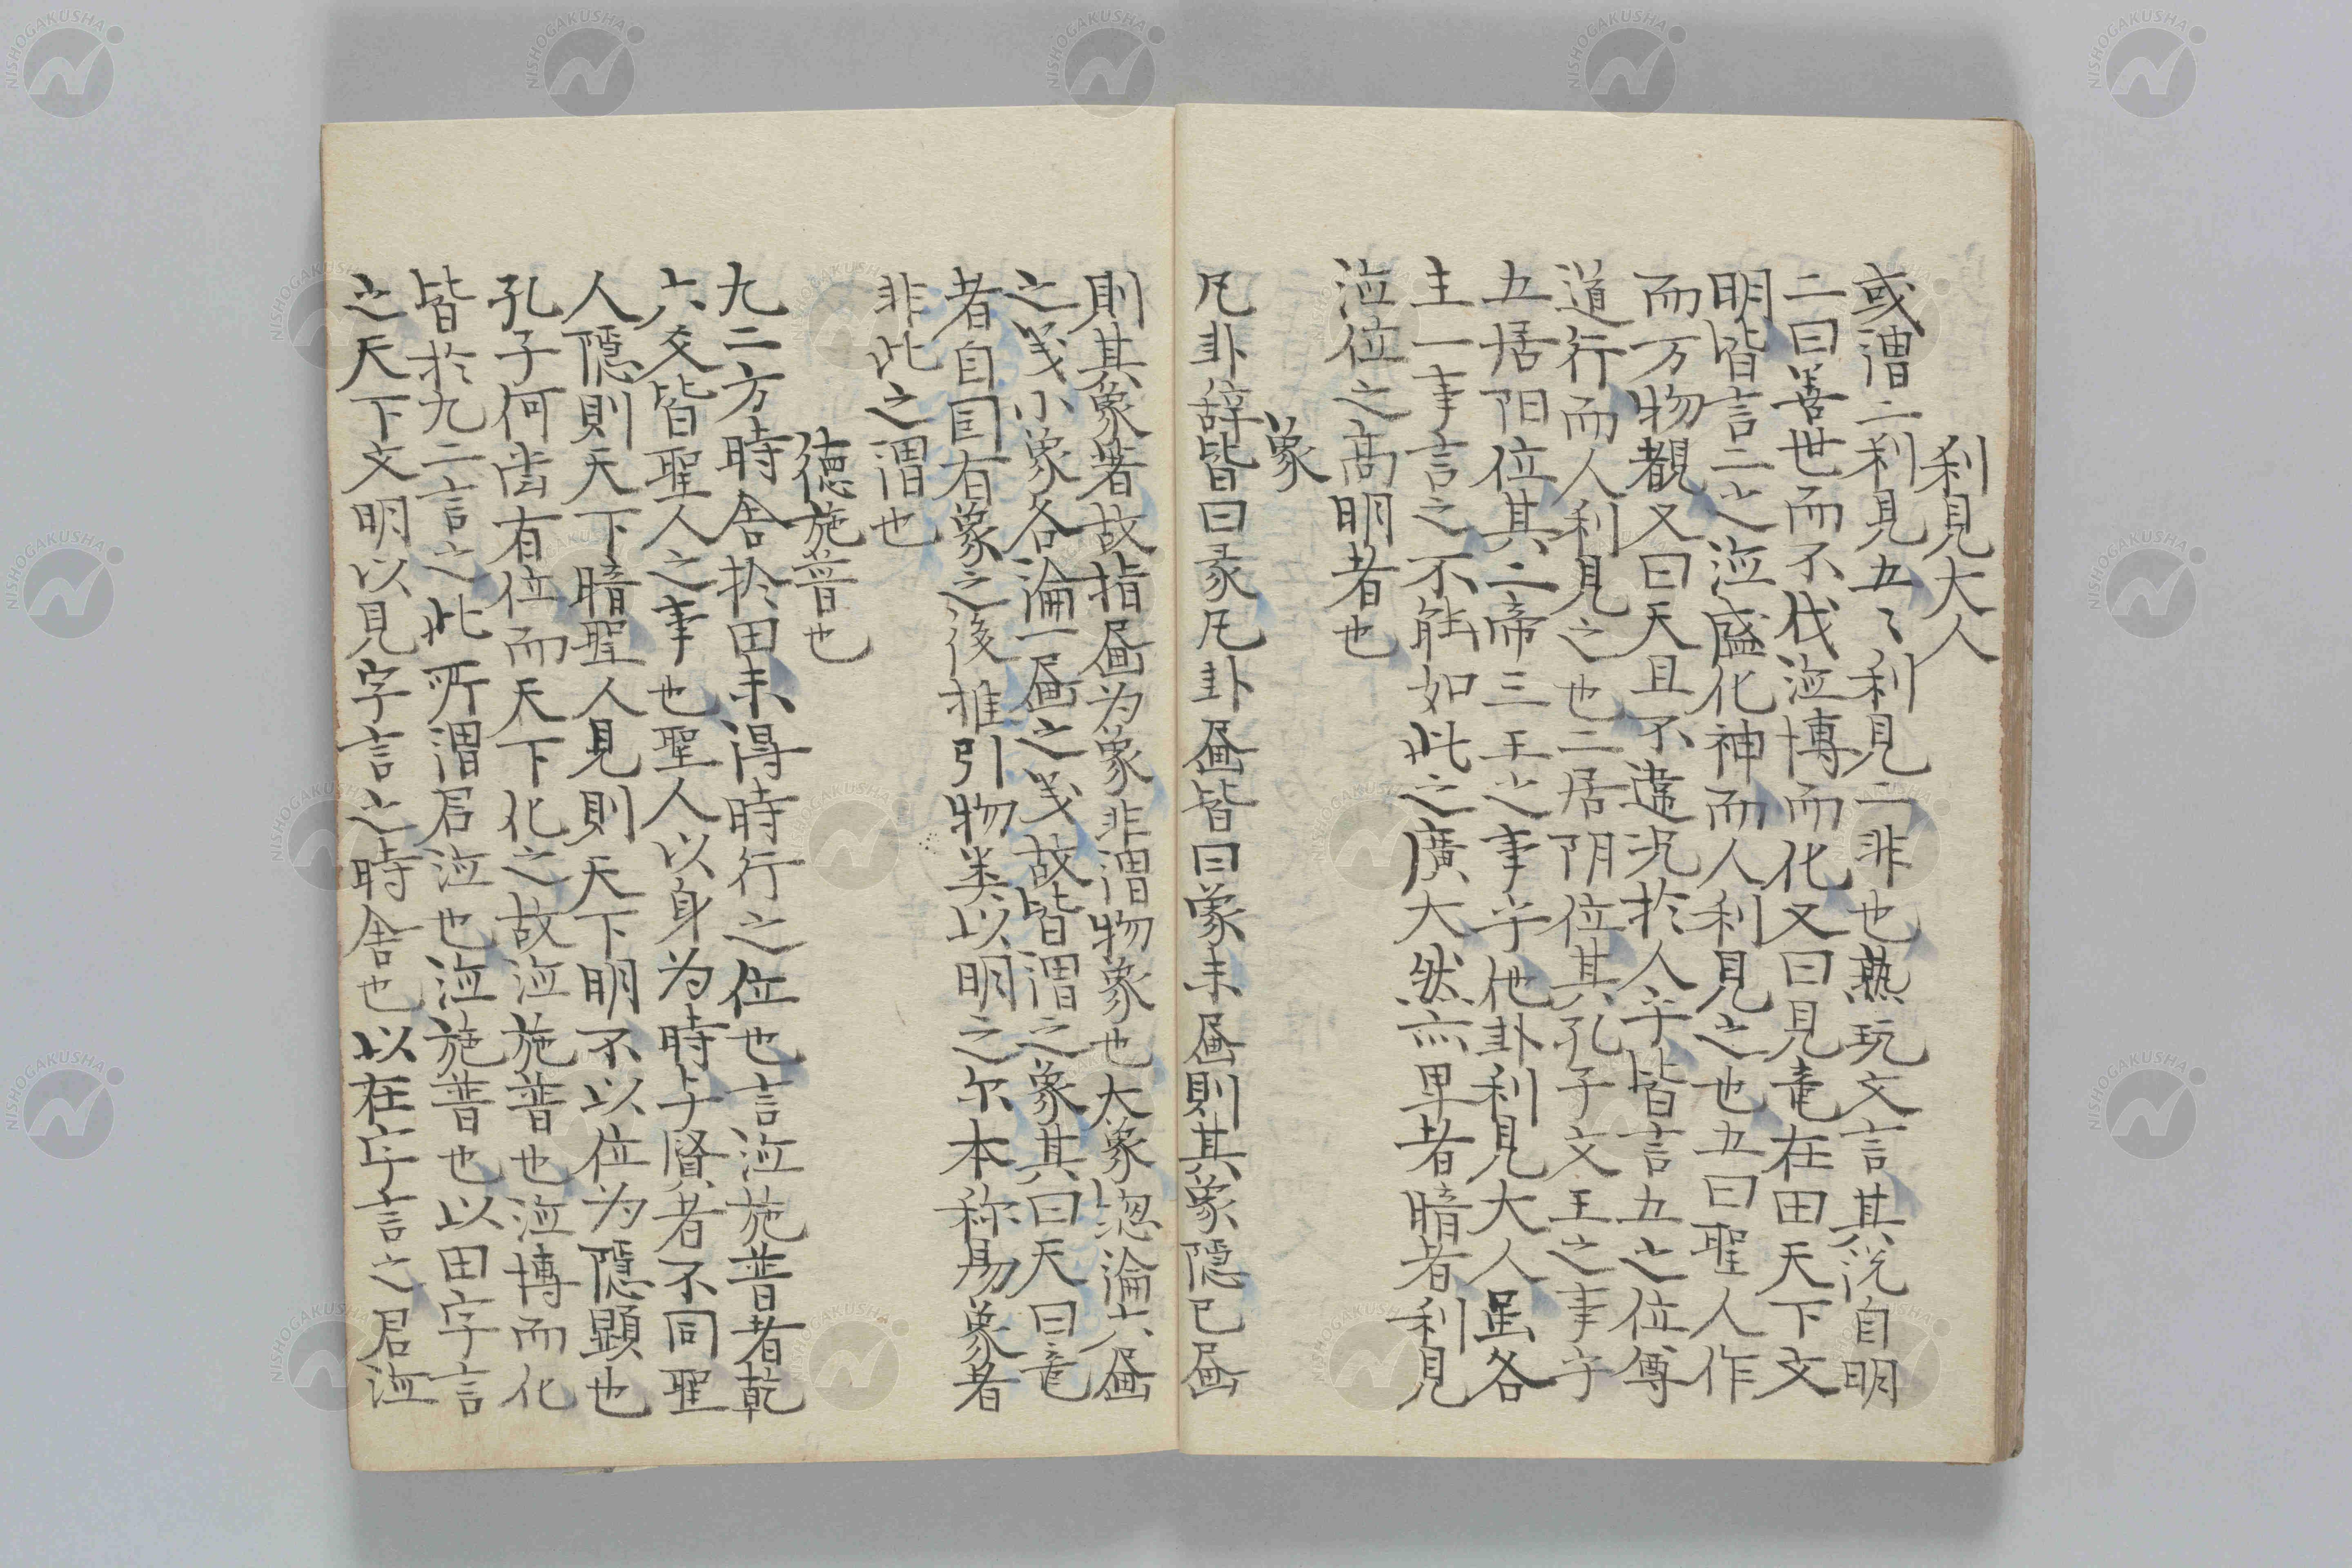 利見大人
或谓二利見五〻利見二非也熟玩文言其说自明
二曰善世而不伐德博而化又曰見竜在田天下文
明皆言二之德盛化神而人利見之也五曰聖人作
而万物覩又曰天且不違況於人乎皆言五之位尊
道行而人利見之也二居阴位其孔子文王之事乎
五居阳位其二帝三王之事乎他卦利見大人虽各
主一事言之不能如此之廣大然亦卑者暗者利見
德位之高明者也
象
凡卦辞皆曰彖凡卦画皆曰象未画則其象隐已画
則其象著故指画为象非谓物象也大象总论六画
之义小象各论一画之义故皆谓之象其曰天曰竜
者自囯有象之後推引物类以明之尔本称易象者
非此之谓也
德施普也
九二方時舍於田未得時行之位也言德施普者乾
六爻皆聖人之事也聖人以身为時与賢者不同聖
人隐則天下暗聖人見則天下明不以位为隐顕也
孔子何尝有位而天下化之故德施普也德博而化
皆於九二言之此所谓君德也德施普也以田字言
之天下文明以見字言之時舍也以在字言之君德